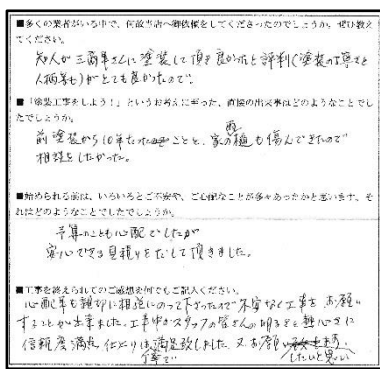 ■多くの業者がいる中で、何故当店へ御依頼をしてくださったのでしょうか。ぜひ教え
てください。
知人が三商事さんに塗装して頂き良かったと評判(塗装の丁寧さと
人柄等も)がとても良かったので。
■「塗装工事をしよう!」というお考えに至った、直接の出来事はどのようなことでし
たでしょうか。
前塗装から10年たったことと、家の雨樋も傷んできたので
相談をしたかった。
■始められる前は、いろいろとご不安や、ご心配なことが多々あったかと思います、そ
れはどのようなことでしたでしょうか。
予算のことも心配でしたが
安心できる見積りをだして頂きました。
■工事を終えられてのご感想を何でもご記入ください。
心配事も親切に相談にのって下さったので不安なく工事をお願い
することが出来ました。工事中もスタッフの皆さんの明るさと熱心さに
信頼度満点、仕上りは満足致しました。又お願い
したいと思い